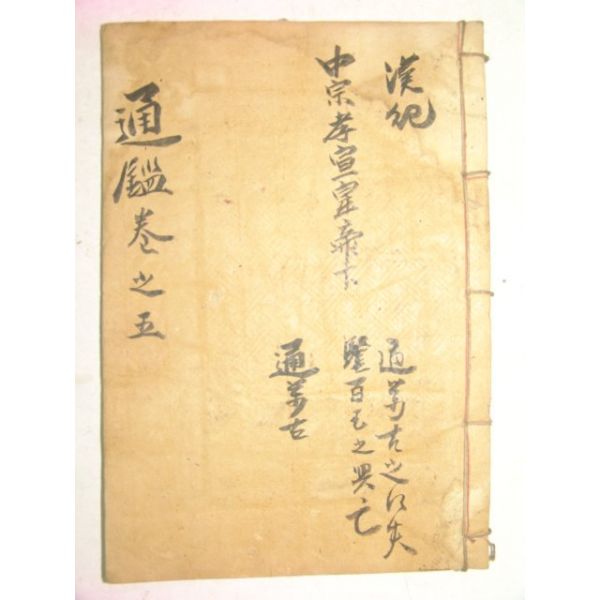 漢紀
中宗孝宣皇帝下
通萬古之得失
鑑百王之興亡
通萬古
通鑑卷之五